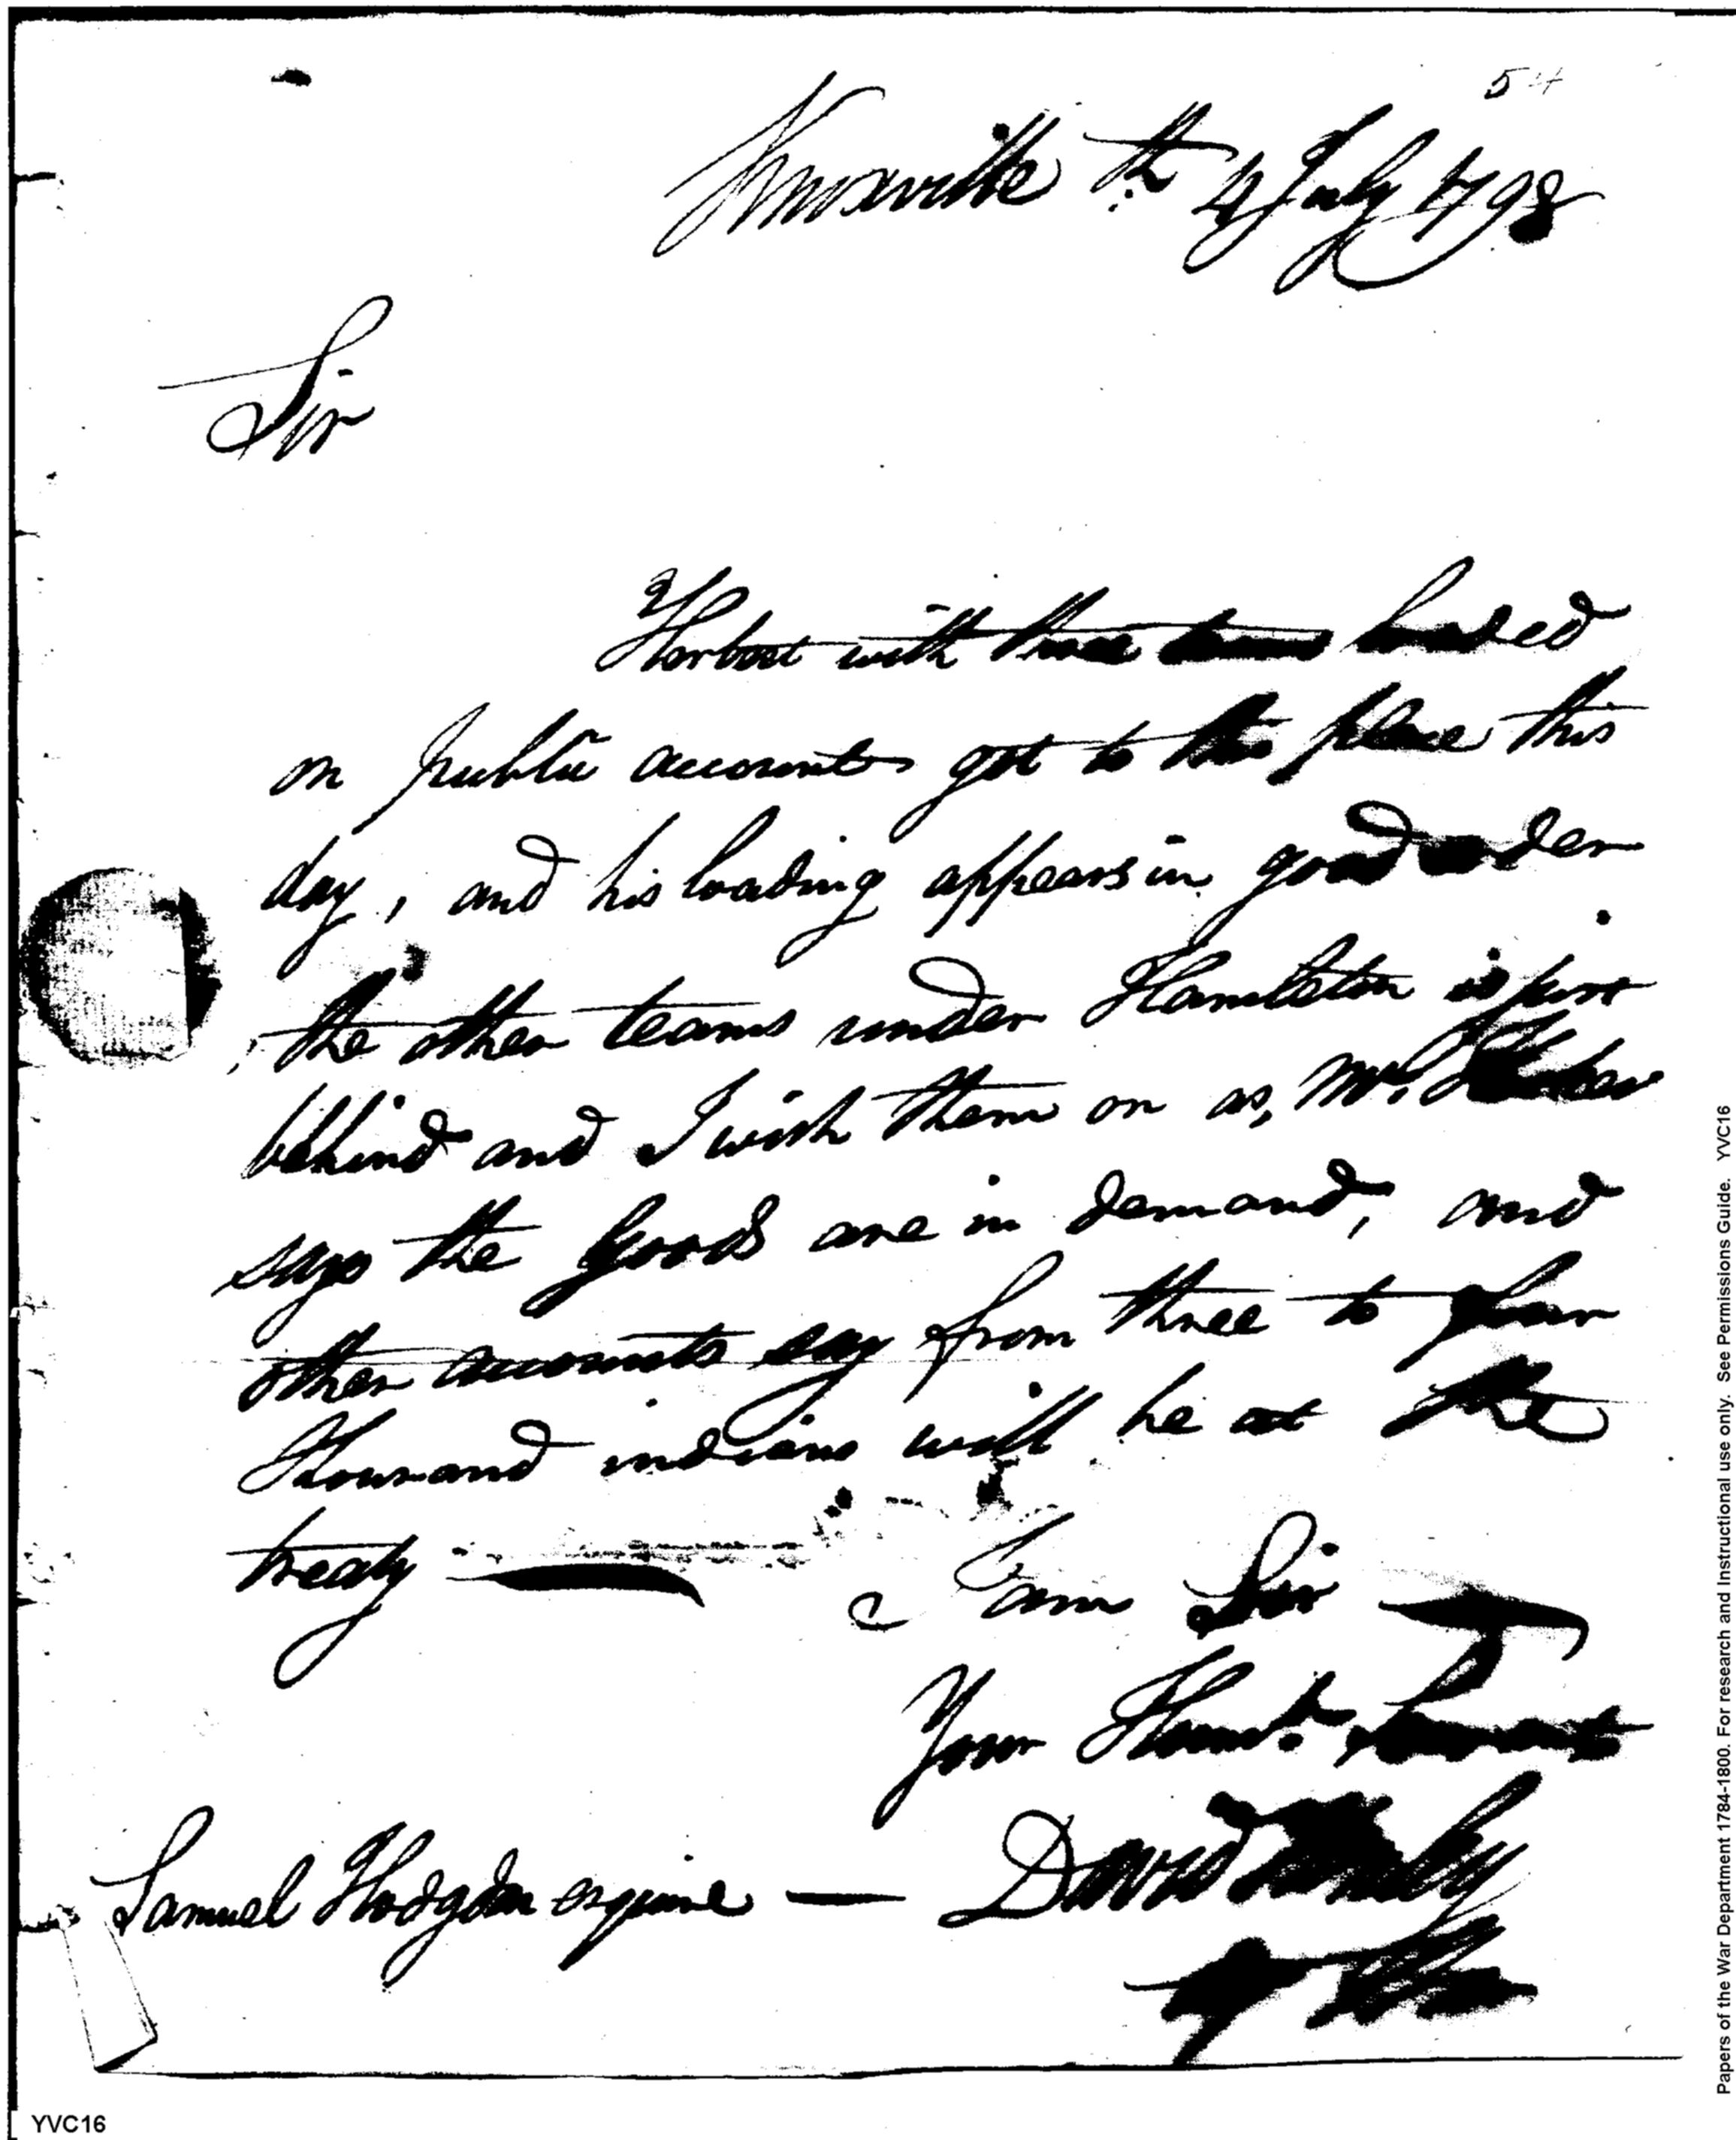 54
Knoxville th 4 July 1798
Sir
Herbert with three teams loaded
on public account got to this place this
day, and his loading appears in good order
the other teams under Hamilton is just
behind and I wish them on as, Mr.
says the goods are in demand, and
other accounts say from three to four
thousand indians will be at the
treaty —
I am Sir
Your Humb. Servant
Samuel Hodgdon esquire — David Henley
Papers of the War Department 1784-1800. For research and Instructional use only. See Permissions Guide. YVC16
YVC16